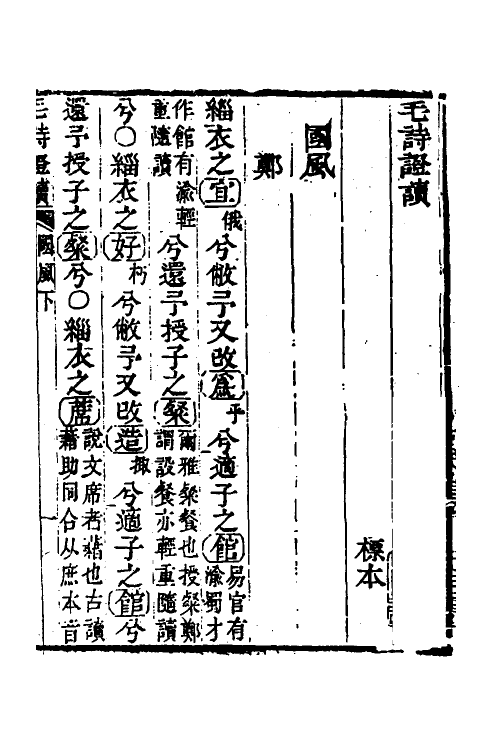 毛詩證讀
標本
國風
鄭
緇衣之宜俄兮敝予又改為乎兮適子之館易官有渝蜀才
作館有渝輕重隨讀兮還予授子之粲爾雅粲餐也授粲鄭謂設餐亦輕重隨讀
兮〇緇衣之好朽兮敝予又改造掫兮適子之館兮
還予授子之粲兮〇緇衣之蓆說文席者藉也古讀藉助同合从庶本音
毛詩證讀 國風下